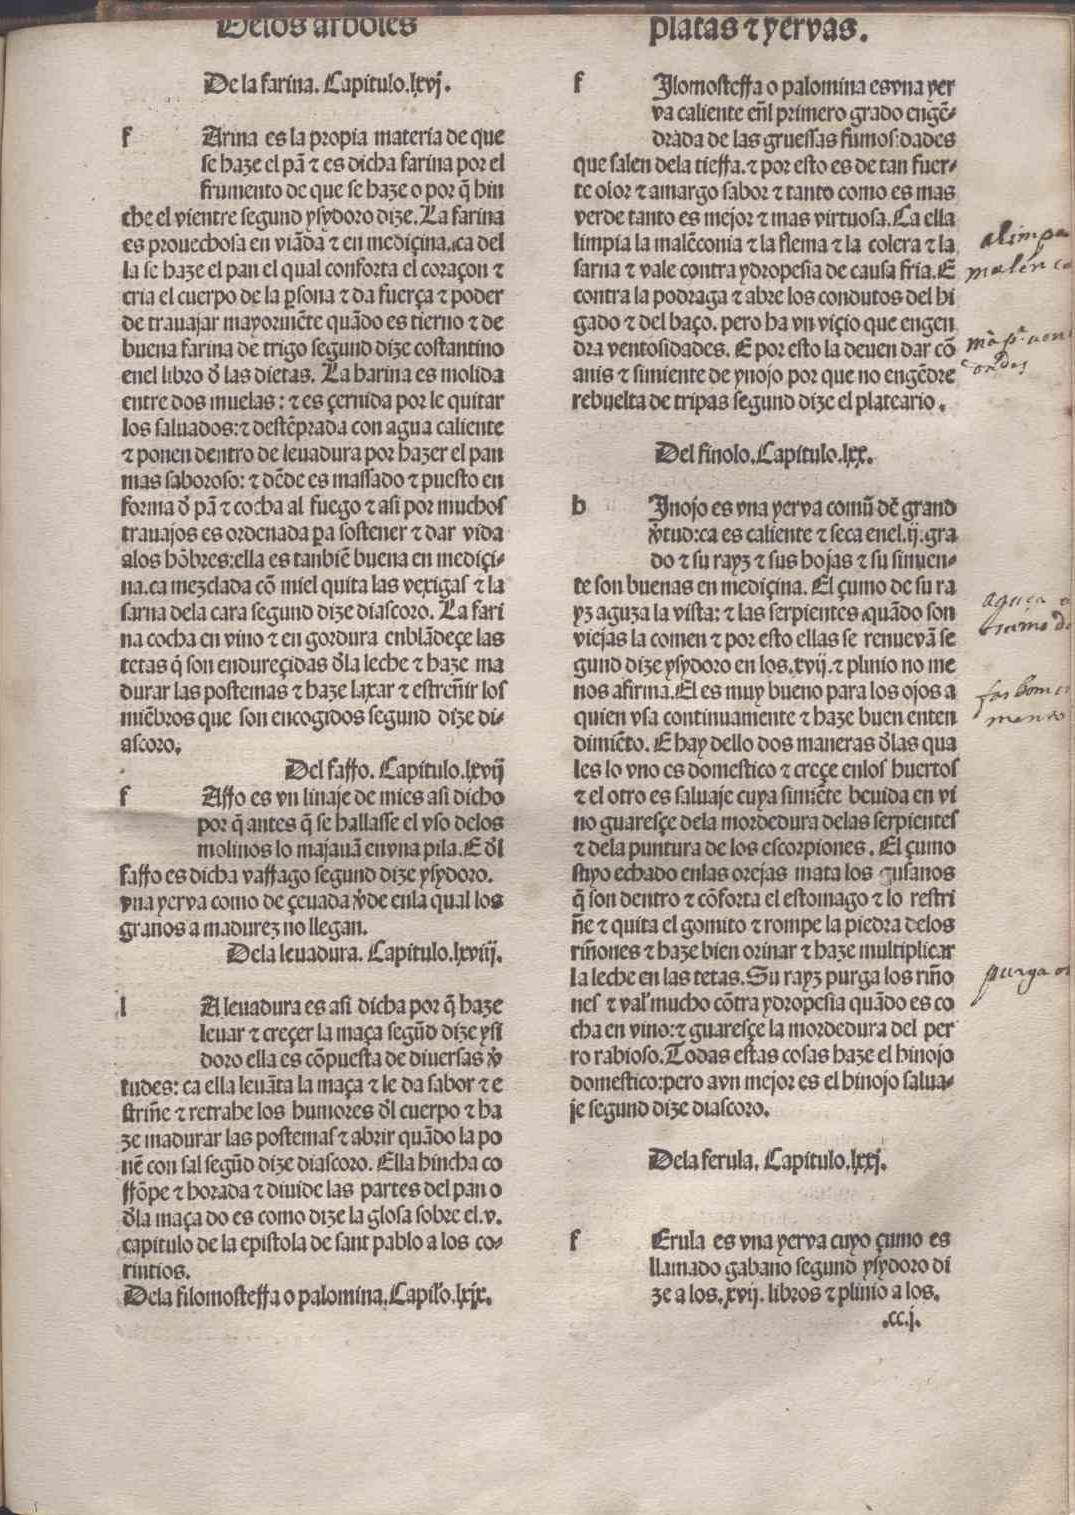 Delos arboles
platas ⁊ yervas.
De la farina. Capitulo.lxvj.
f Arina es la propia materia de que
se haze el pã ⁊ es dicha farina por el
frumento de que se haze o por q̃ hin
che el vientre segund ysydoro dize. La farina
es prouechosa en viãda ⁊ en mediçina.ca del
la se haze el pan el qual conforta el coraçon ⁊
cria el cuerpo de la ꝑsona ⁊ da fuerça ⁊ poder
de trauajar mayormẽte quãdo es tierno ⁊ de
buena farina de trigo segund dize costantino
enel libro đ las dietas. La harina es molida
entre dos muelas: ⁊ es çernida por le quitar
los saluados:⁊ destẽprada con agua caliente
⁊ ponen dentro de leuadura por hazer el pan
mas saboroso: ⁊ dẽde es massado ⁊ puesto en
forma đ pã ⁊ cocha al fuego ⁊ asi por muchos
trauajos es ordenada ꝑa sostener ⁊ dar vida
alos hõbres:ella es tanbiẽ buena en mediçi-
na.ca mezclada cõ miel quita las vexigas ⁊ la
sarna dela cara segund dize diascoro. La fari
na cocha en vino ⁊ en gordura enblãdeçe las
tetas q̃ son endureçidas đla leche ⁊ haze ma
durar las postemas ⁊ haze laxar ⁊ estreñir los
miẽbros que son encogidos segund dize di-
ascoro.
Del farro. Capitulo.lxvij
f Arro es vn linaje de mies asi dicho
por q̃ antes q̃ se hallasse el vso delos
molinos lo majauã envna pila. E đl
farro es dicha varrago segund dize ysydoro.
vna yerva como de çeuada v̾de enla qual los
granos a madurez no llegan.
Dela leuadura. Capitulo.lxviij.
l A leuadura es asi dicha por q̃ haze
leuar ⁊ creçer la maça segũd dize ysi
doro ella es cõpuesta de diuersas v̾
tudes: ca ella leuãta la maça ⁊ le da sabor ⁊ e
striñe ⁊ retrahe los humores đl cuerpo ⁊ ha
ze madurar las postemas ⁊ abrir quãdo la po
nẽ con sal segũd dize diascoro. Ella hincha co
rrõpe ⁊ horada ⁊ diuide las partes del pan o
đla maça do es como dize la glosa sobre el.v.
capitulo de la epistola de sant pablo a los co-
rintios.
Dela filomosterra o palomina. Capitu̾lo.lxix.
f Ilomosterra o palomina es vna yer
va caliente eñl primero grado engẽ-
drada de las gruessas fumosidades
que salen dela tierra.⁊ por esto es de tan fuer-
te olor ⁊ amargo sabor ⁊ tanto como es mas
verde tanto es mejor ⁊ mas virtuosa. Ca ella
limpia la malẽconia ⁊ la flema ⁊ la colera ⁊ la
sarna ⁊ vale contra ydropesia de causa fria. E
contra la podraga ⁊ abre los condutos del hi
gado ⁊ del baço. pero ha vn viçio que engen
dra ventosidades. E por esto la deuen dar cõ
anis ⁊ simiente de ynojo por que no engẽdre
rebuelta de tripas segund dize el plateario.
Del finolo. Capitulo.lxx.
h Inojo es vna yerva comũ dẽ grand
v̾tud:ca es caliente ⁊ seca enel.ij.gra
do ⁊ su rayz ⁊ sus hojas ⁊ su simien-
te son buenas en mediçina. El çumo de su ra
yz aguza la vista: ⁊ las serpientes quãdo son
viejas la comen ⁊ por esto ellas se renuevã se
gund dize ysydoro en los.xvij.⁊ plinio no me
nos afirma. El es muy bueno para los ojos a
quien vsa continuamente ⁊ haze buen enten
dimiẽto. E hay dello dos maneras đlas qua
les lo vno es domestico ⁊ creçe enlos huertos
⁊ el otro es saluaje cuya simiẽte beuida en vi
no guaresçe dela mordedura delas serpientes
⁊ dela puntura de los escorpiones. El çumo
suyo echado enlas orejas mata los gusanos
q̃ son dentro ⁊ cõforta el estomago ⁊ lo restri
ñe ⁊ quita el gomito ⁊ rompe la piedra delos
riñones ⁊ haze bien orinar ⁊ haze multiplicar
la leche en las tetas. Su rayz purga los riño
nes ⁊ val' mucho cõtra ydropesia quãdo es co
cha en vino:⁊ guaresçe la mordedura del per
ro rabioso. Todas estas cosas haze el hinojo
domestico:pero avn mejor es el hinojo salua-
je segund dize diascoro.
Dela ferula. Capitulo.lxxj.
f Erula es vna yerva cuyo çumo es
llamado gabano segund ysydoro di
ze a los.xvij. libros ⁊ plinio a los.
.cc.j.
alimpa
malenco
aguça
purga